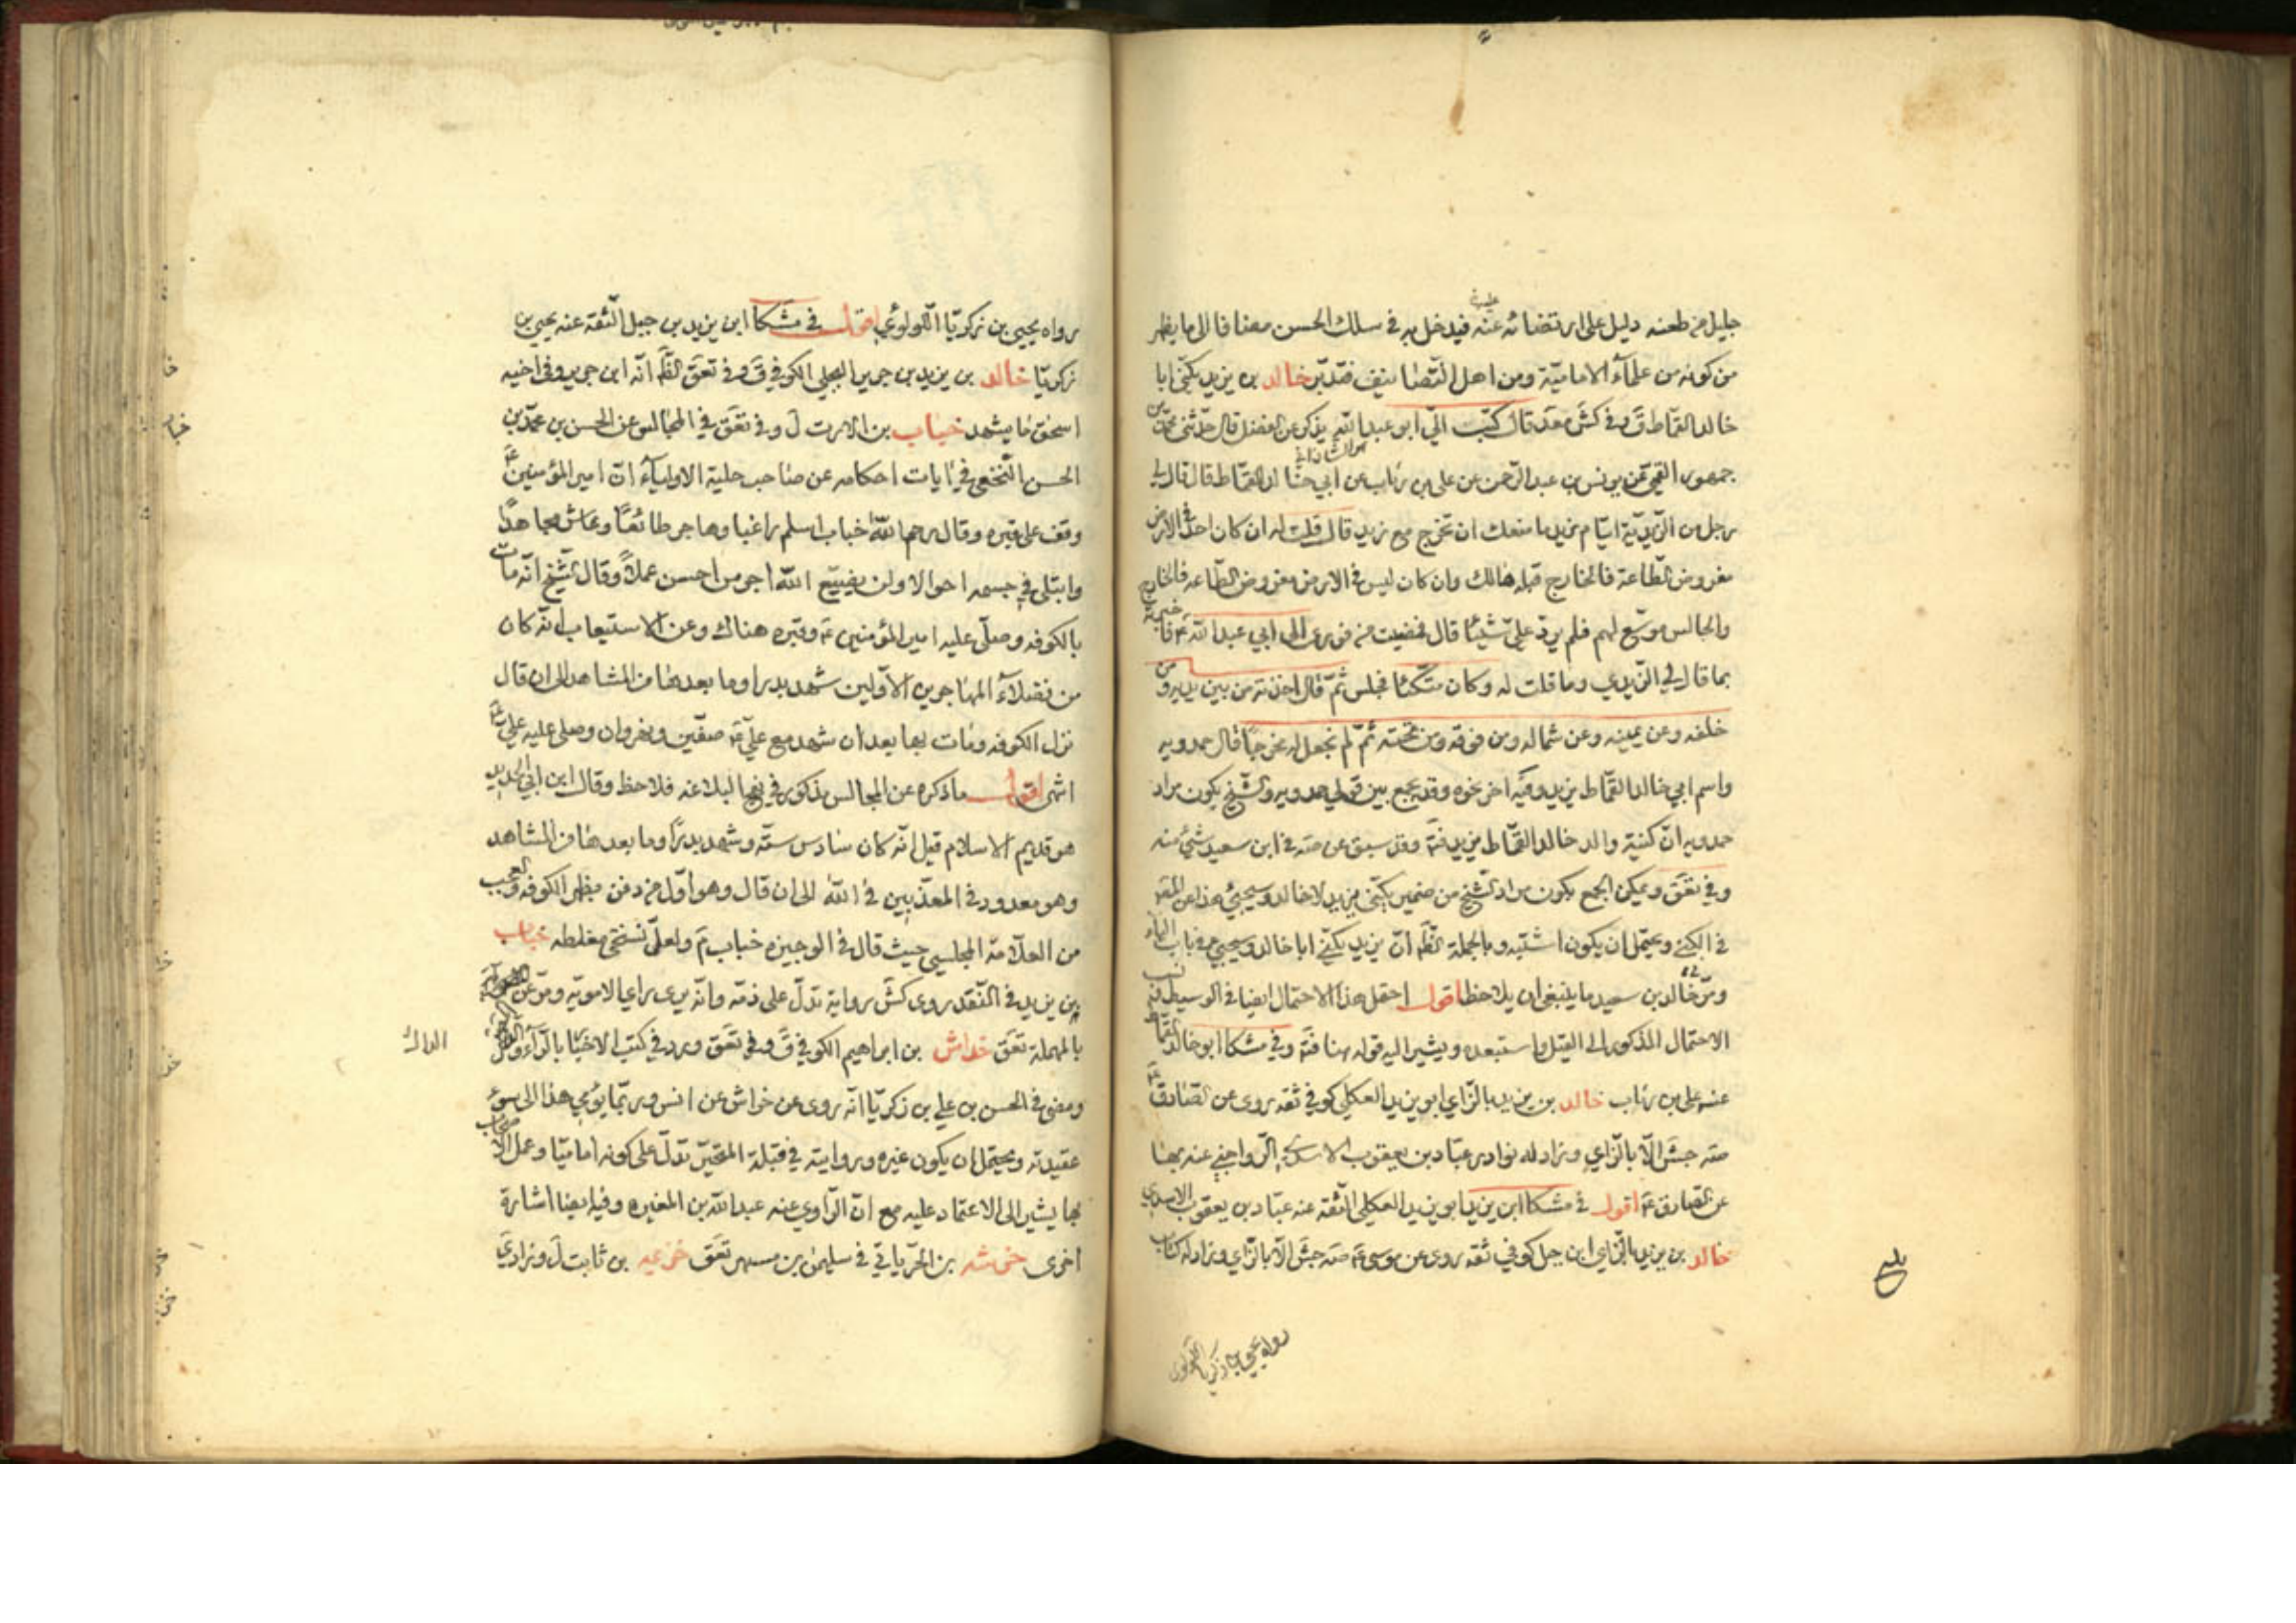 جليل من طعنه دليل على ارتضائه عنه فيدخل به في سلك الحسن مضافا الى ما يظهر
عليه
من كونه من علماء الامامية ومن اهل التصانيف فتدبر خالد بن يزيد يكنى ابا
خالد القماط ق وفى كش معد قال كتب الي ابو عبد الله يذكر عن الفضل قال حدثنى محمد بن
جمهور القمي عن يونس بن عبد الرحمن عن علي بن رئاب عن ابي خالد القماط قال قال لي
رجل من الزيدية ايام زيد ما منعك ان تخرج مع زيد قال قلت له ان كان احد في الارض
مفروض الطاعة فالخارج قبله هالك وان كان ليس في الارض مفروض الطاعة فالخارج
والجالس موسع لهم فلم يرد علي شيئا قال فمضيت من فوري الى ابي عبد الله ع فاخبرته
بما قال لي الزيدي وما قلت له وكان متكئا فجلس ثم قال اخذته من بين يديه ومن
خلفه وعن يمينه وعن شماله ومن فوقه ومن تحته ثم لم تجعل له مخرجا قال حمدويه
واسم ابي خالد القماط يزيد وفيه اخر نحوه وقد يجمع بين قولي حمدويه والشيخ بكون مراد
حمدويه ان كنية والد خالد القماط يزيد فتد وقد سبق عن صه في ابن سعيد شئ منه
وفي تعق ويمكن الجمع بكون مراد الشيخ من ضمير يكنى يزيد لا خالد وسيجئ هذا عن المصـ
في الكنى ويحتمل ان يكون اشتبه وبالجملة الظ ان يزيد يكنى ابا خالد وسيجئ في باب الياء
ومر في خالد بن سعيد ما ينبغي ان يلاحظ اقول احتمل هذا الاحتمال ايضا في الوسيط
الاحتمال المذكور الى القيل واستبعده ويشير اليه قوله هنا فتد وفي مشكا ابو خالد القماط
عنه علي بن رئاب خالد بن يزيد بالزاي ابو يزيد العكلي كوفي ثقه روى عن الصادق ع
صه جش الا بالزاي وزاد له نوادر عباد بن يعقوب الاسدي الرواجني عنه بها
عن الصادق ع اقول في مشكا ابن يزيد ابو يزيد العكلي الثقة عنه عباد بن يعقوب الاسدي
خالد بن يزيد بالزاي ابن جبل كوفي ثقه روى عن موسى ع صه جش الا بالزاي وزاد له كتاب
رواه يحيى بن زكريا اللؤلؤي
رواه يحيى بن زكريا اللولوئي اقول في مشكا ابن يزيد بن جبل الثقة عنه يحيى بن
زكريا خالد بن يزيد بن جرير البجلي الكوفي ق وفي تعق الظ انه ابن جرير وفي اخيه
اسحق ما يشهد خباب بن الارت ل وفي تعق في المجالس عن الحسن بن محمد بن
الحسن النخعي في ايات احكامه عن صاحب حلية الاولياء ان امير المؤمنين ع
وقف على قبره وقال رحم الله خباب اسلم راغبا وهاجر طائعا وعاش مجاهدا
وابتلى في جسمه احوالا ولن يضيع الله اجر من احسن عملا وقال الشيخ انه مات
بالكوفه وصلى عليه امير المؤمنين ع وقبره هناك وعن الاستيعاب انه كان
من فضلاء المهاجرين الاولين شهد بدرا وما بعدها من المشاهد الى ان قال
نزل الكوفه ومات بها بعد ان شهد مع علي ع صفين ونهروان وصلى عليه علي ع
انتهى اقول ما ذكره عن المجالس مذكور في نهج البلاغه فلاحظ وقال ابن ابي الحديد
هو قديم الاسلام قيل انه كان سادس ستة وشهد بدرا وما بعدها من المشاهد
وهو معدود في المعذبين في الله الى ان قال وهو اول من دفن بظهر الكوفه والعجب
من العلامة المجلسي حيث قال في الوجيزه خباب م ولعل نسختي مغلطه خباب
بن يزيد في النقد روى كش رواية تدل على ذمه وانه يرى راي الاموية ومر عن
بالمهملة تعق خداش بن ابراهيم الكوفي ق وفي تعق ورد في كتب الاخبار بالراء
ومضى في الحسن بن علي بن زكريا انه روى عن خراش عن انس وربما يومي هذا الى سوء
عقيدته ويحتمل ان يكون غيره وروايته في قبلة المتحير تدل على كونه اماميا وعمل الاصحاب
بها يشير الى الاعتماد عليه مع ان الراوي عنه عبد الله بن المغيره وفيه ايضا اشارة
اخرى خرشه بن الحر ياتي في سليمن بن مسهر تعق خزيمه بن ثابت ل وزاد ي